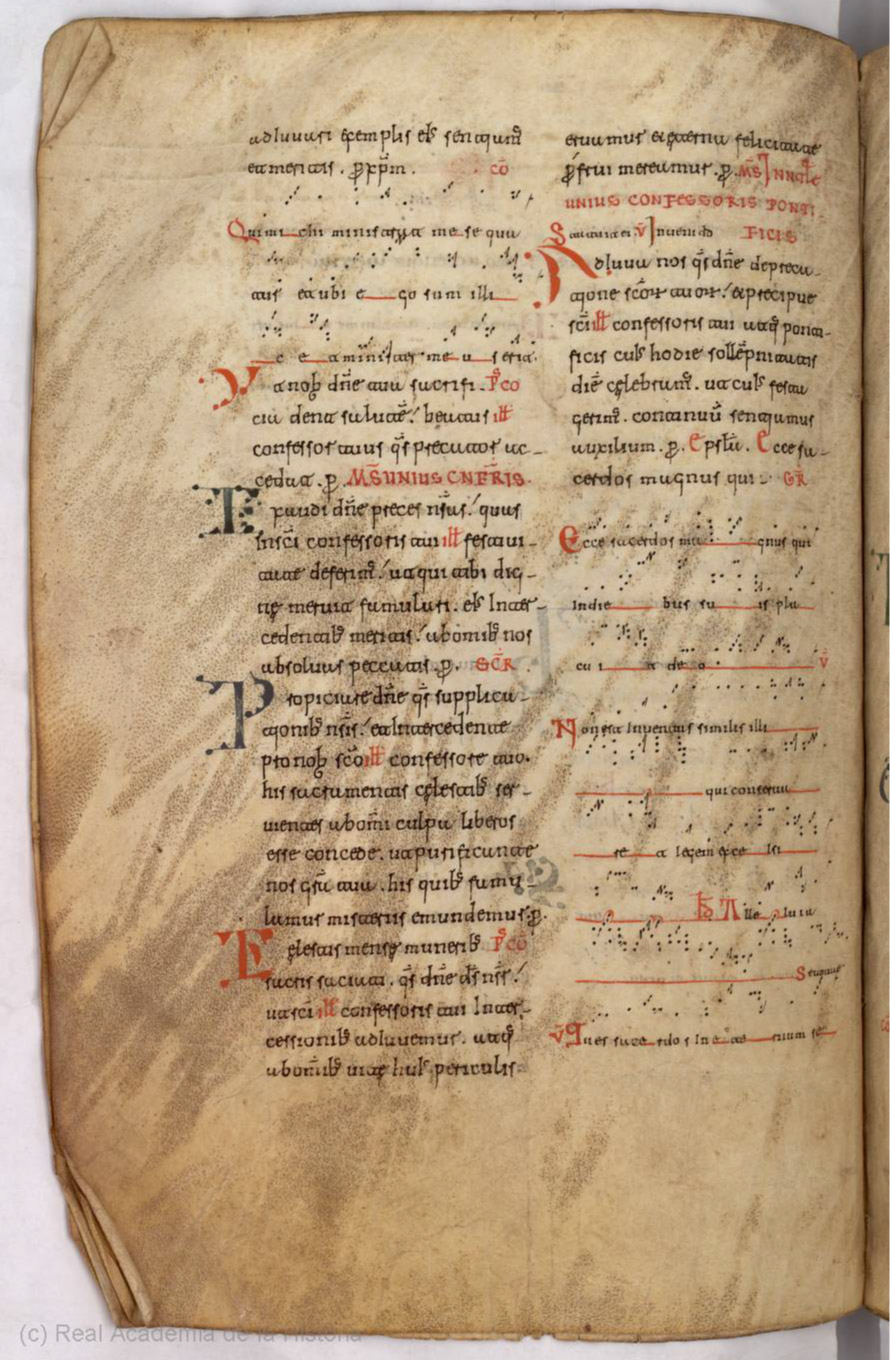 adiuuari exemplis et sentiam̄
et meritis . ꝑ xp̄m . CŌ
Qui mi chi ministrat me se qua
tur et ubi e go sum illi
ic e t minister me us erit
Vt nob dn̄e tua sacrifi . P̄CO
cia dent salutē beatus ill
confessor tuus qs̄ precator ac
cedat . ꝑ . MS̄ UNIUS CNFR̄IS .
Exaudi dn̄e preces nr̄as quas
in sc̄i confessoris tui ill festiui
tate deferim̄ ut qui tibi dig
ne meruit famulari . ei inter
cedentib meritis ab omib nos
absolue peccatis . ꝑ . SCR̄
Propiciare dn̄e qs̄ supplica
tionib nr̄is et intercedente
pro nob sc̄o ill confessore tuo .
his sacramentis celestib ser
uientes ab om̄i culpa liberos
esse concede . ut purificante
nos gr̄a tua . his quib famu
lamur misteriis emundemur . ꝑ .
Celestis mense munerib P̄CO
sacris saciati . qs̄ dn̄e ds̄ nr̄
ut sc̄i ill confessoris tui inter
cessionib adiuuemur . utq
ab om̄ib uite hui periculis
eruamur et eterna felicitate
ꝑfrui mereamur . ꝑ . MS̄ IN NATLE
UNIUS CONFESSORIS PONTI
Statuit ei V̄ Inueni dd FICIS
Adiuua nos qs̄ dn̄e depreca
tione scōr tuor et precipue
sc̄i ill confessoris tui atq ponti
ficis cui hodie sollēpnitatis
diē celebram̄ . ut cui festa
gerim̄ . continuū sentiamus
auxilium . ꝑ . Epsla . Ecce sa
cerdos magnus qui . GR̄
Ecce sacerdos ma gnus qui
in die bus su is pla
cu i t de o V̄
Non est inuentus similis illi
qui conserua
re t legem exce lsi
Alle luia
Seruaui
V̄ Tu es sace rdo s in e te rnum se